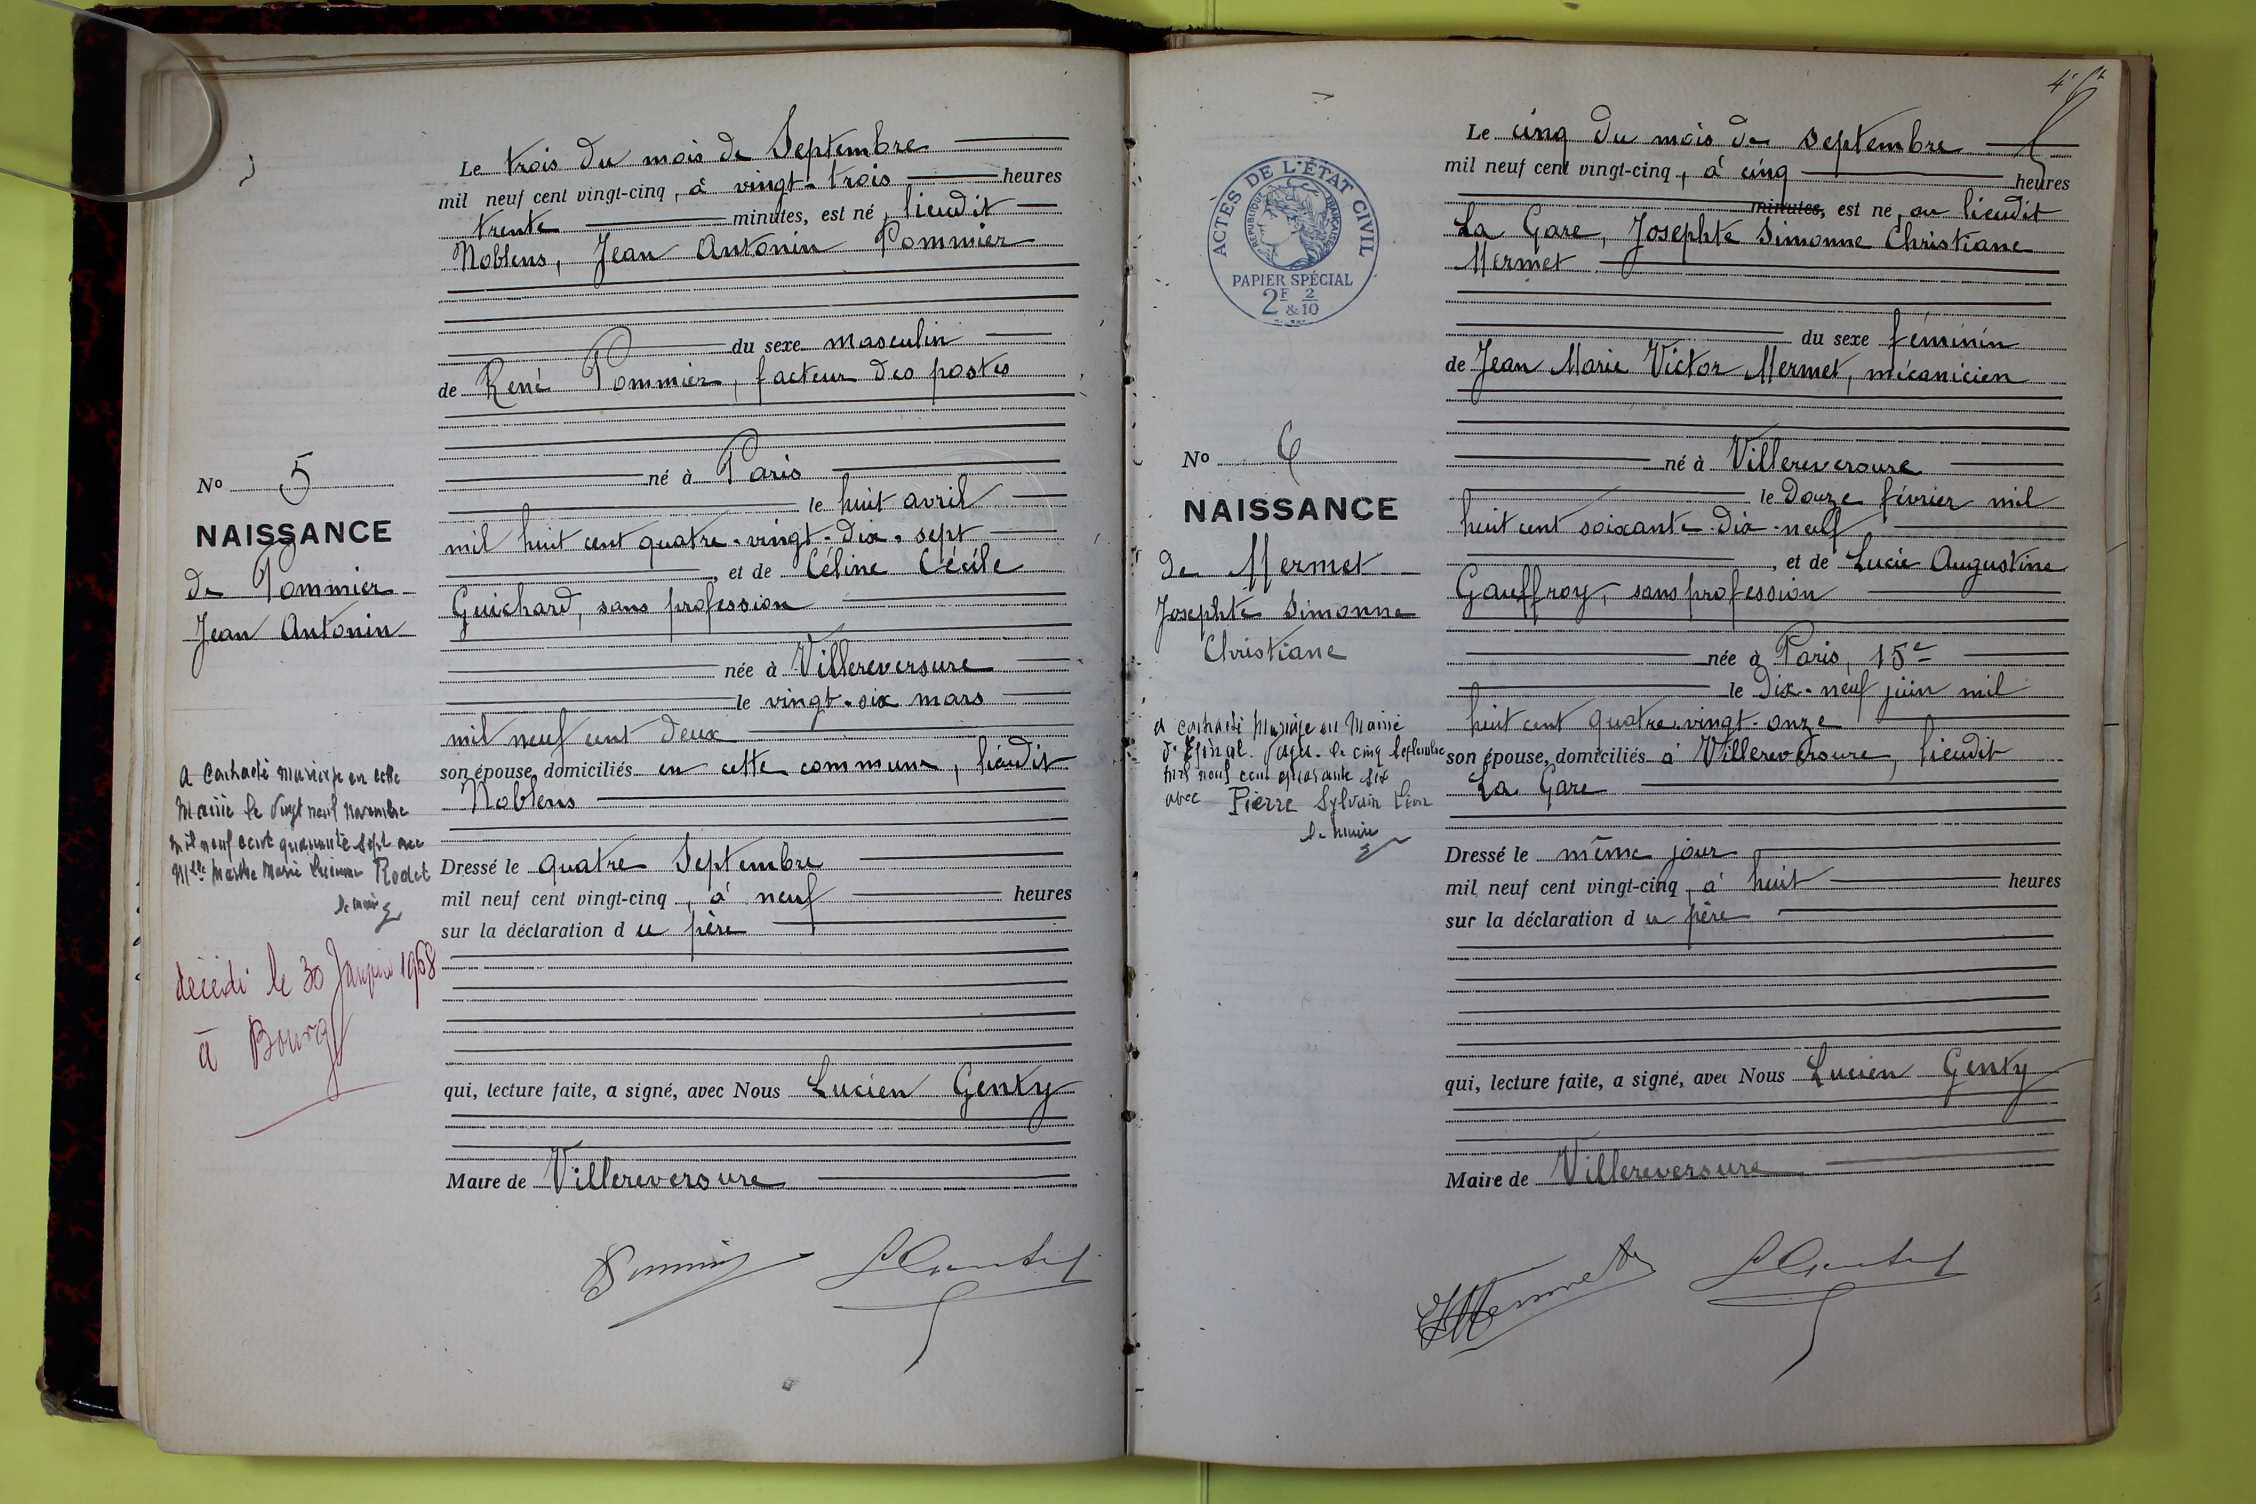 Le trois du mois de Septembre
mil neuf cent vingt-cinq, à vingt-trois heures
trente minutes, est né, lieudit
Noblens, Jean Antonin Pommier
du sexe masculin
de René Pommier, facteur des postes
né à Paris
le huit avril
mil huit cent quatre-vingt-dix-sept
, et de Céline Cécile
Guichard, sans profession
née à Villereversure
le vingt-six mars
mil neuf cent deux
son épouse, domiciliés en cette commune, lieudit
Noblens
Dressé le quatre Septembre
mil neuf cent vingt-cinq, à neuf heures
sur la déclaration du père
qui, lecture faite, a signé, avec Nous Lucien Genty
Maire de Villereversure
No 5
NAISSANCE
de Pommier
Jean Antonin
a contracté mariage en cette
Mairie le vingt neuf novembre
mil neuf cent quarante sept avec
Mlle Marthe Marie Rodet
le maire
décédé le 30 Janvier 1968
à Bourg
ACTES DE L'ÉTAT CIVIL
RÉPUBLIQUE FRANÇAISE
PAPIER SPÉCIAL
2F & 2/10
Le cinq du mois de septembre
mil neuf cent vingt-cinq, à cinq heures
minutes, est né, au lieudit
La Gare, Josephte Simonne Christiane
Mermet
du sexe féminin
de Jean Marie Victor Mermet, mécanicien
né à Villereversure
le douze février mil
huit cent soixante-dix-neuf
, et de Lucie Augustine
Gauffroy, sans profession
née à Paris, 15e
le dix-neuf juin mil
huit cent quatre-vingt-onze
son épouse, domiciliés à Villereversure, lieudit
La Gare
Dressé le même jour
mil neuf cent vingt-cinq, à huit heures
sur la déclaration du père
qui, lecture faite, a signé, avec Nous Lucien Genty
Maire de Villereversure
No 6
NAISSANCE
de Mermet
Josephte Simonne
Christiane
a contracté mariage en Mairie
d'Epinal le cinq septembre
mil neuf cent quarante six
avec Pierre Sylvain Léon
le maire